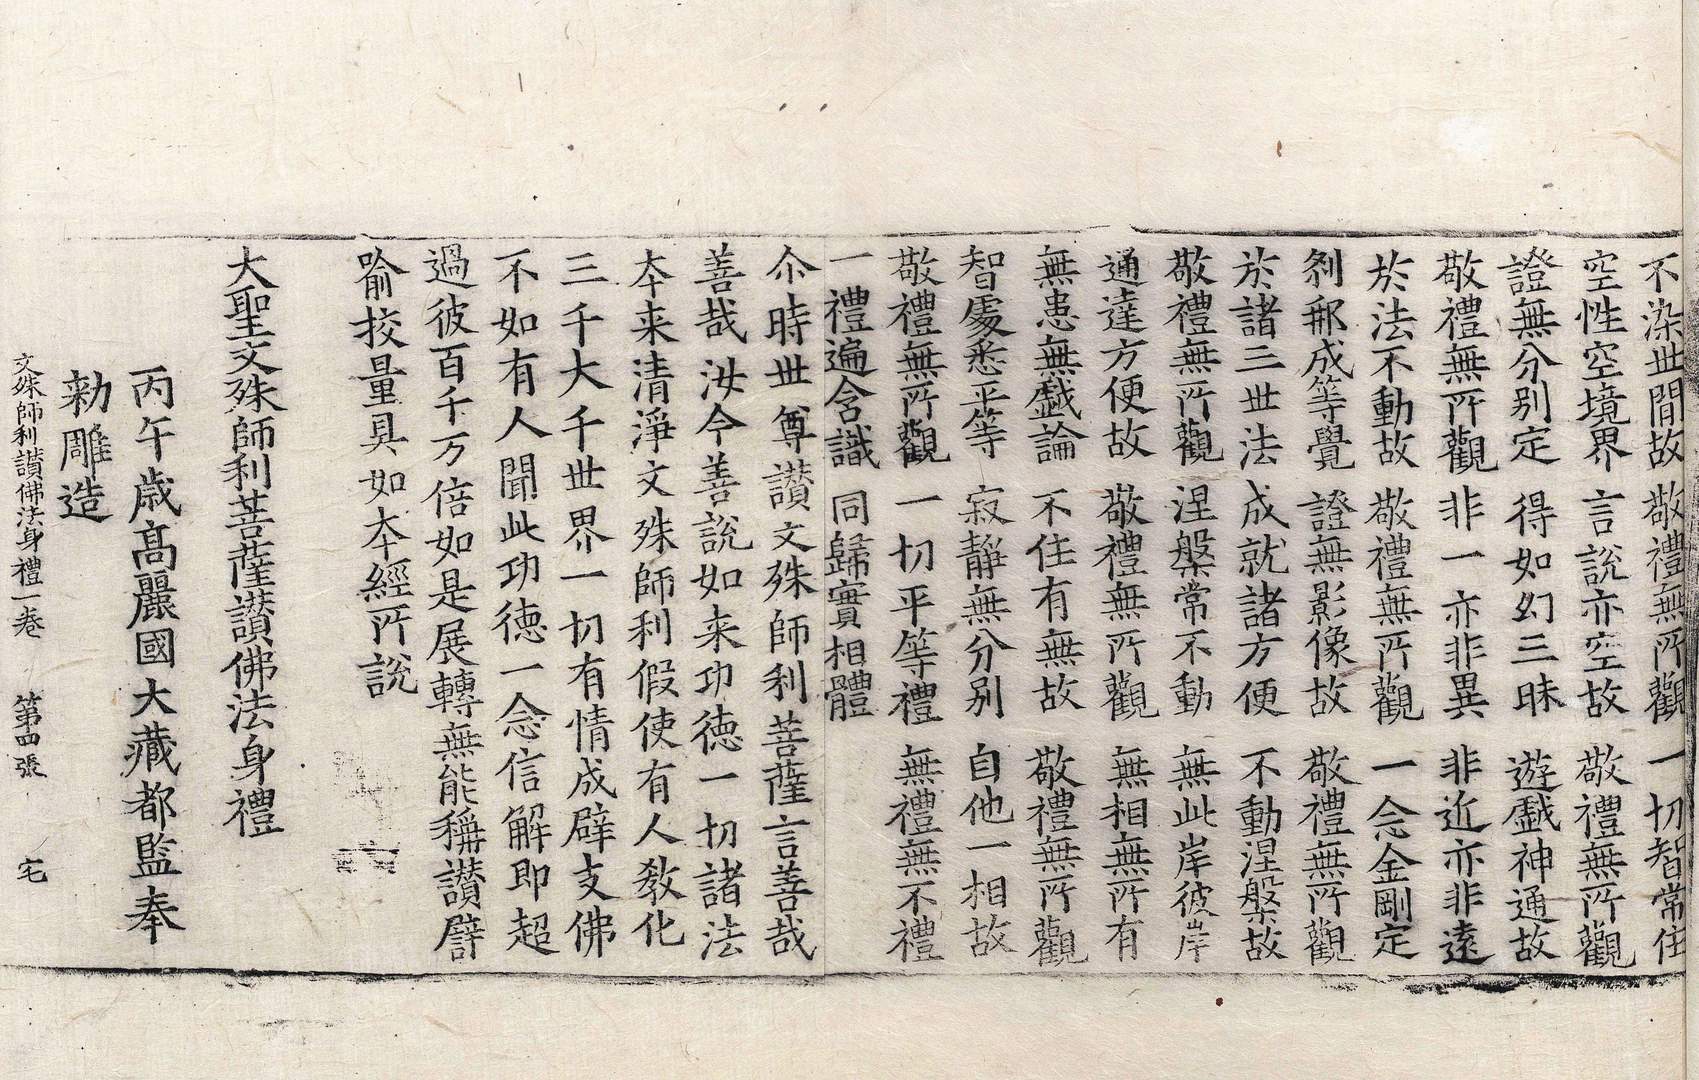 不染世間故 敬禮無所觀 一切智常住
空性空境界 言說亦空故 敬禮無所觀
證無分別定 得如幻三昧 遊戲神通故
敬禮無所觀 非一亦非異 非近亦非遠
於法不動故 敬禮無所觀 一念金剛定
剎那成等覺 證無影像故 敬禮無所觀
於諸三世法 成就諸方便 不動涅槃故
敬禮無所觀 涅槃常不動 無此岸彼岸
通達方便故 敬禮無所觀 無相無所有
無患無戲論 不住有無故 敬禮無所觀
智處悉平等 寂靜無分別 自他一相故
敬禮無所觀 一切平等禮 無禮無不禮
一禮遍含識 同歸實相體
尒時世尊讃文殊師利菩薩言善哉
善哉汝今善說如来功德一切諸法
本来清淨文殊師利假使有人教化
三千大千世界一切有情成辟支佛
不如有人聞此功德一念信解即超
過彼百千万倍如是展轉無能稱讃譬
喻挍量具如本經所說
大聖文殊師利菩薩讃佛法身禮
丙午歲高麗國大藏都監奉
勑雕造
文殊師利讃佛法身禮一卷 第四張 宅